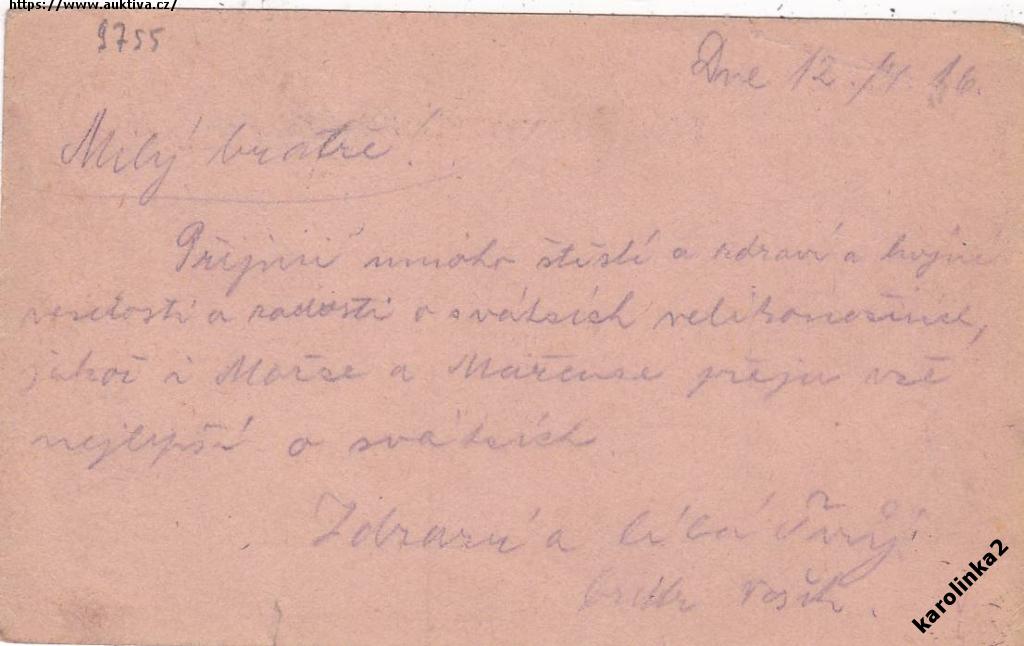 https://www.auktiva.cz/
9755
Dne 12./4. 16.
Milý bratře!
Přijmi mnoho štěstí a zdraví a hojně
veselosti a radosti o svátcích velikonočních,
jakož i Mařce a Mařence přeju vše
nejlepší o svátcích
Zdraví a líbá Tvůj
bratr Vašík.
karolinka2